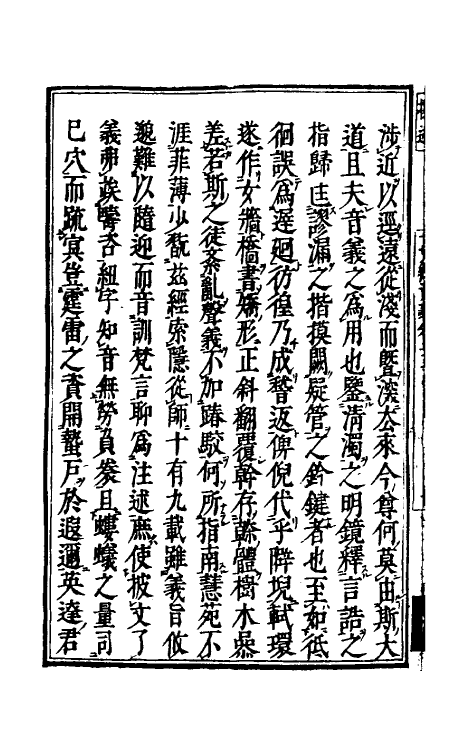 涉近以逕遠從淺而暨深去來今尊何莫由斯大
道且夫音義之爲用也鑒清濁之明鏡釋言誥之
指歸匡謬漏之揩摸闢疑管之鈐鍵者也至如低
徊誤爲遲迴彷徨乃成稽返俾倪代乎睥堄軾環
遂作女牆橋書矯形正斜翻覆幹存體樹木參
差若斯之徒紊亂聲義不加踳駮何所指南慧苑不
涯菲薄少翫茲經索隱從師十有九載雖義旨攸
邈難以隨迎而音訓梵言聊爲注述庶使披文了
義弗俟咨紐字知音無勞負袠且螻蟻之量司
已穴而疏冥豈霆雷之資開蟄戶於遐邇英達君